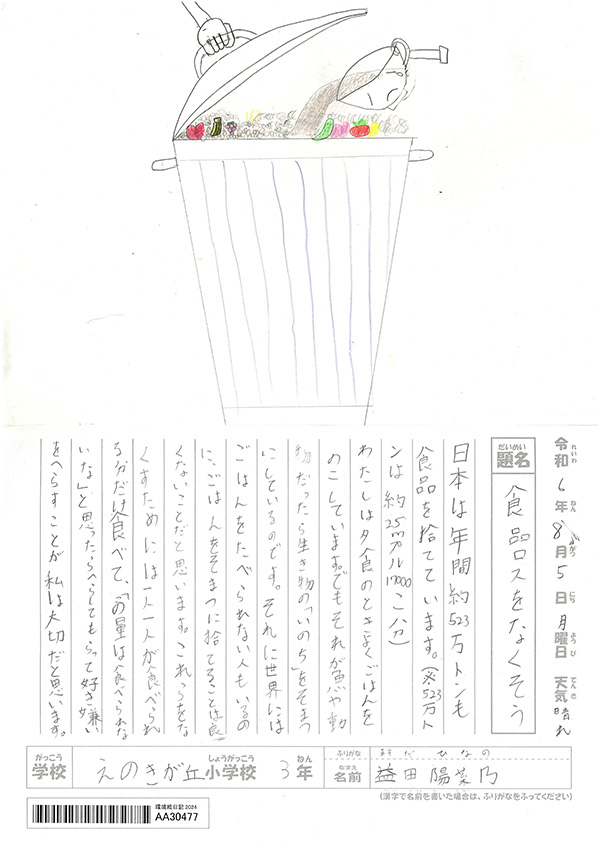 令和6年8月5日月曜日 天気晴れ
題名 食品ロスをなくそう
日本は年間約523万トンも
食品を捨てています。(※523万ト
ンは約25mプール17000こ分)
わたしは夕食のときよくごはんを
のこしています。でもそれが魚や動
物だったら生き物の「いのち」をそまつ
にしているのです。それに世界には
ごはんをたべられない人もいるの
に、ごはんをそまつに捨てることは良
くないことだと思います。これらをな
くすためには一人一人が食べられ
る分だけ食べて、「この量は食べられな
いな」と思ったらへらしてもらって好き嫌い
をへらすことが私は大切だと思います。
学校 えのきが丘小学校 3年
ふりがな ますだ ひなの
名前 益田陽菜乃
(漢字で名前を書いた場合は、ふりがなをふってください)
環境絵日記2024
AA30477